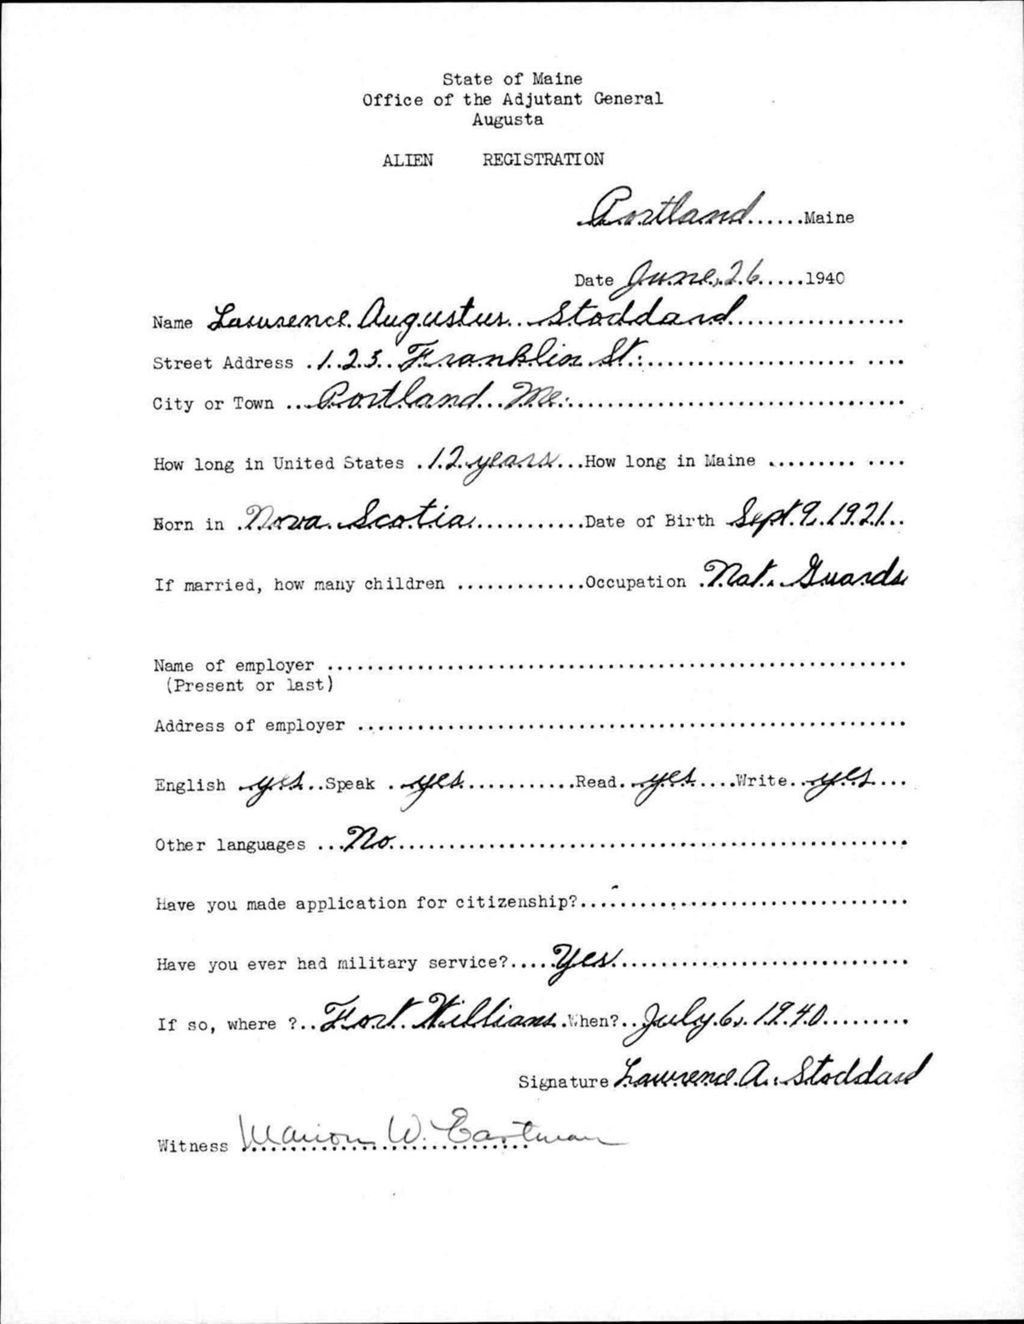 State of Maine
Office of the Adjutant General
Augusta
ALIEN REGISTRATION
Portland......Maine
Date June, 26.....1940
Name Lawrence Augustus Stoddard..................
Street Address .123 Franklin St:........................... ....
City or Town ...Portland Me:...................................
How long in United States .12 years...How long in Maine ......... ....
Born in .Nova Scotia...........Date of Birth Sept. 9, 1921..
If married, how many children .............Occupation .Nat. Guards
Name of employer ..........................................................
(Present or last)
Address of employer .......................................................
English yes..Speak .yes...........Read..yes....Write..yes....
Other languages ...No...................................................
Have you made application for citizenship?.................................
Have you ever had military service?.....Yes.............................
If so, where ?..Fort Williams.When?..July 6, 1940.........
Signature Lawrence A. Stoddard
Witness Marion W. Eastman